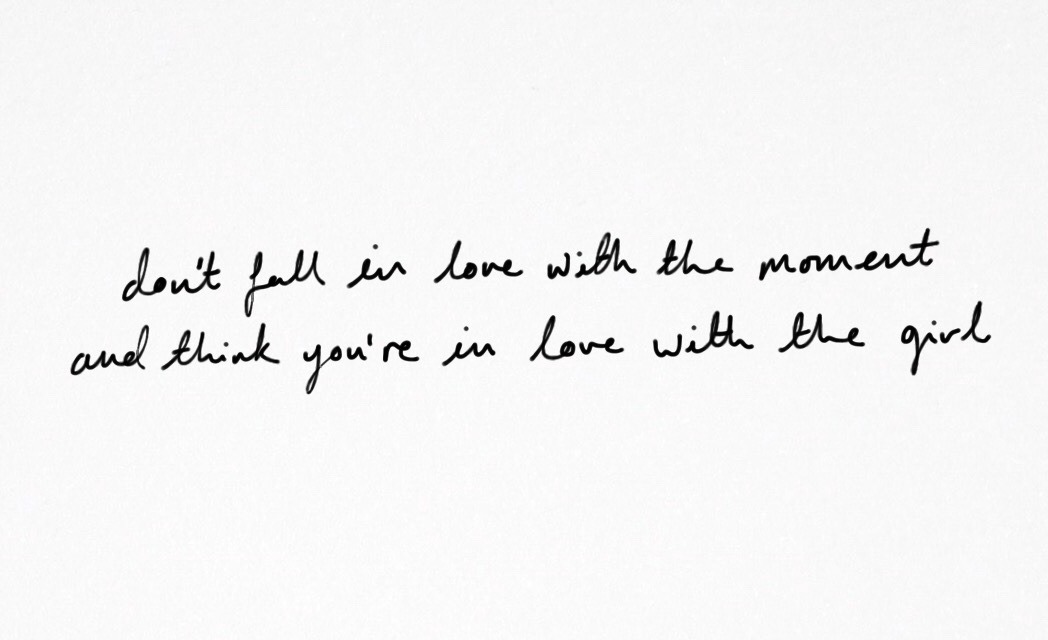 don't fall in love with the moment
and think you're in love with the girl